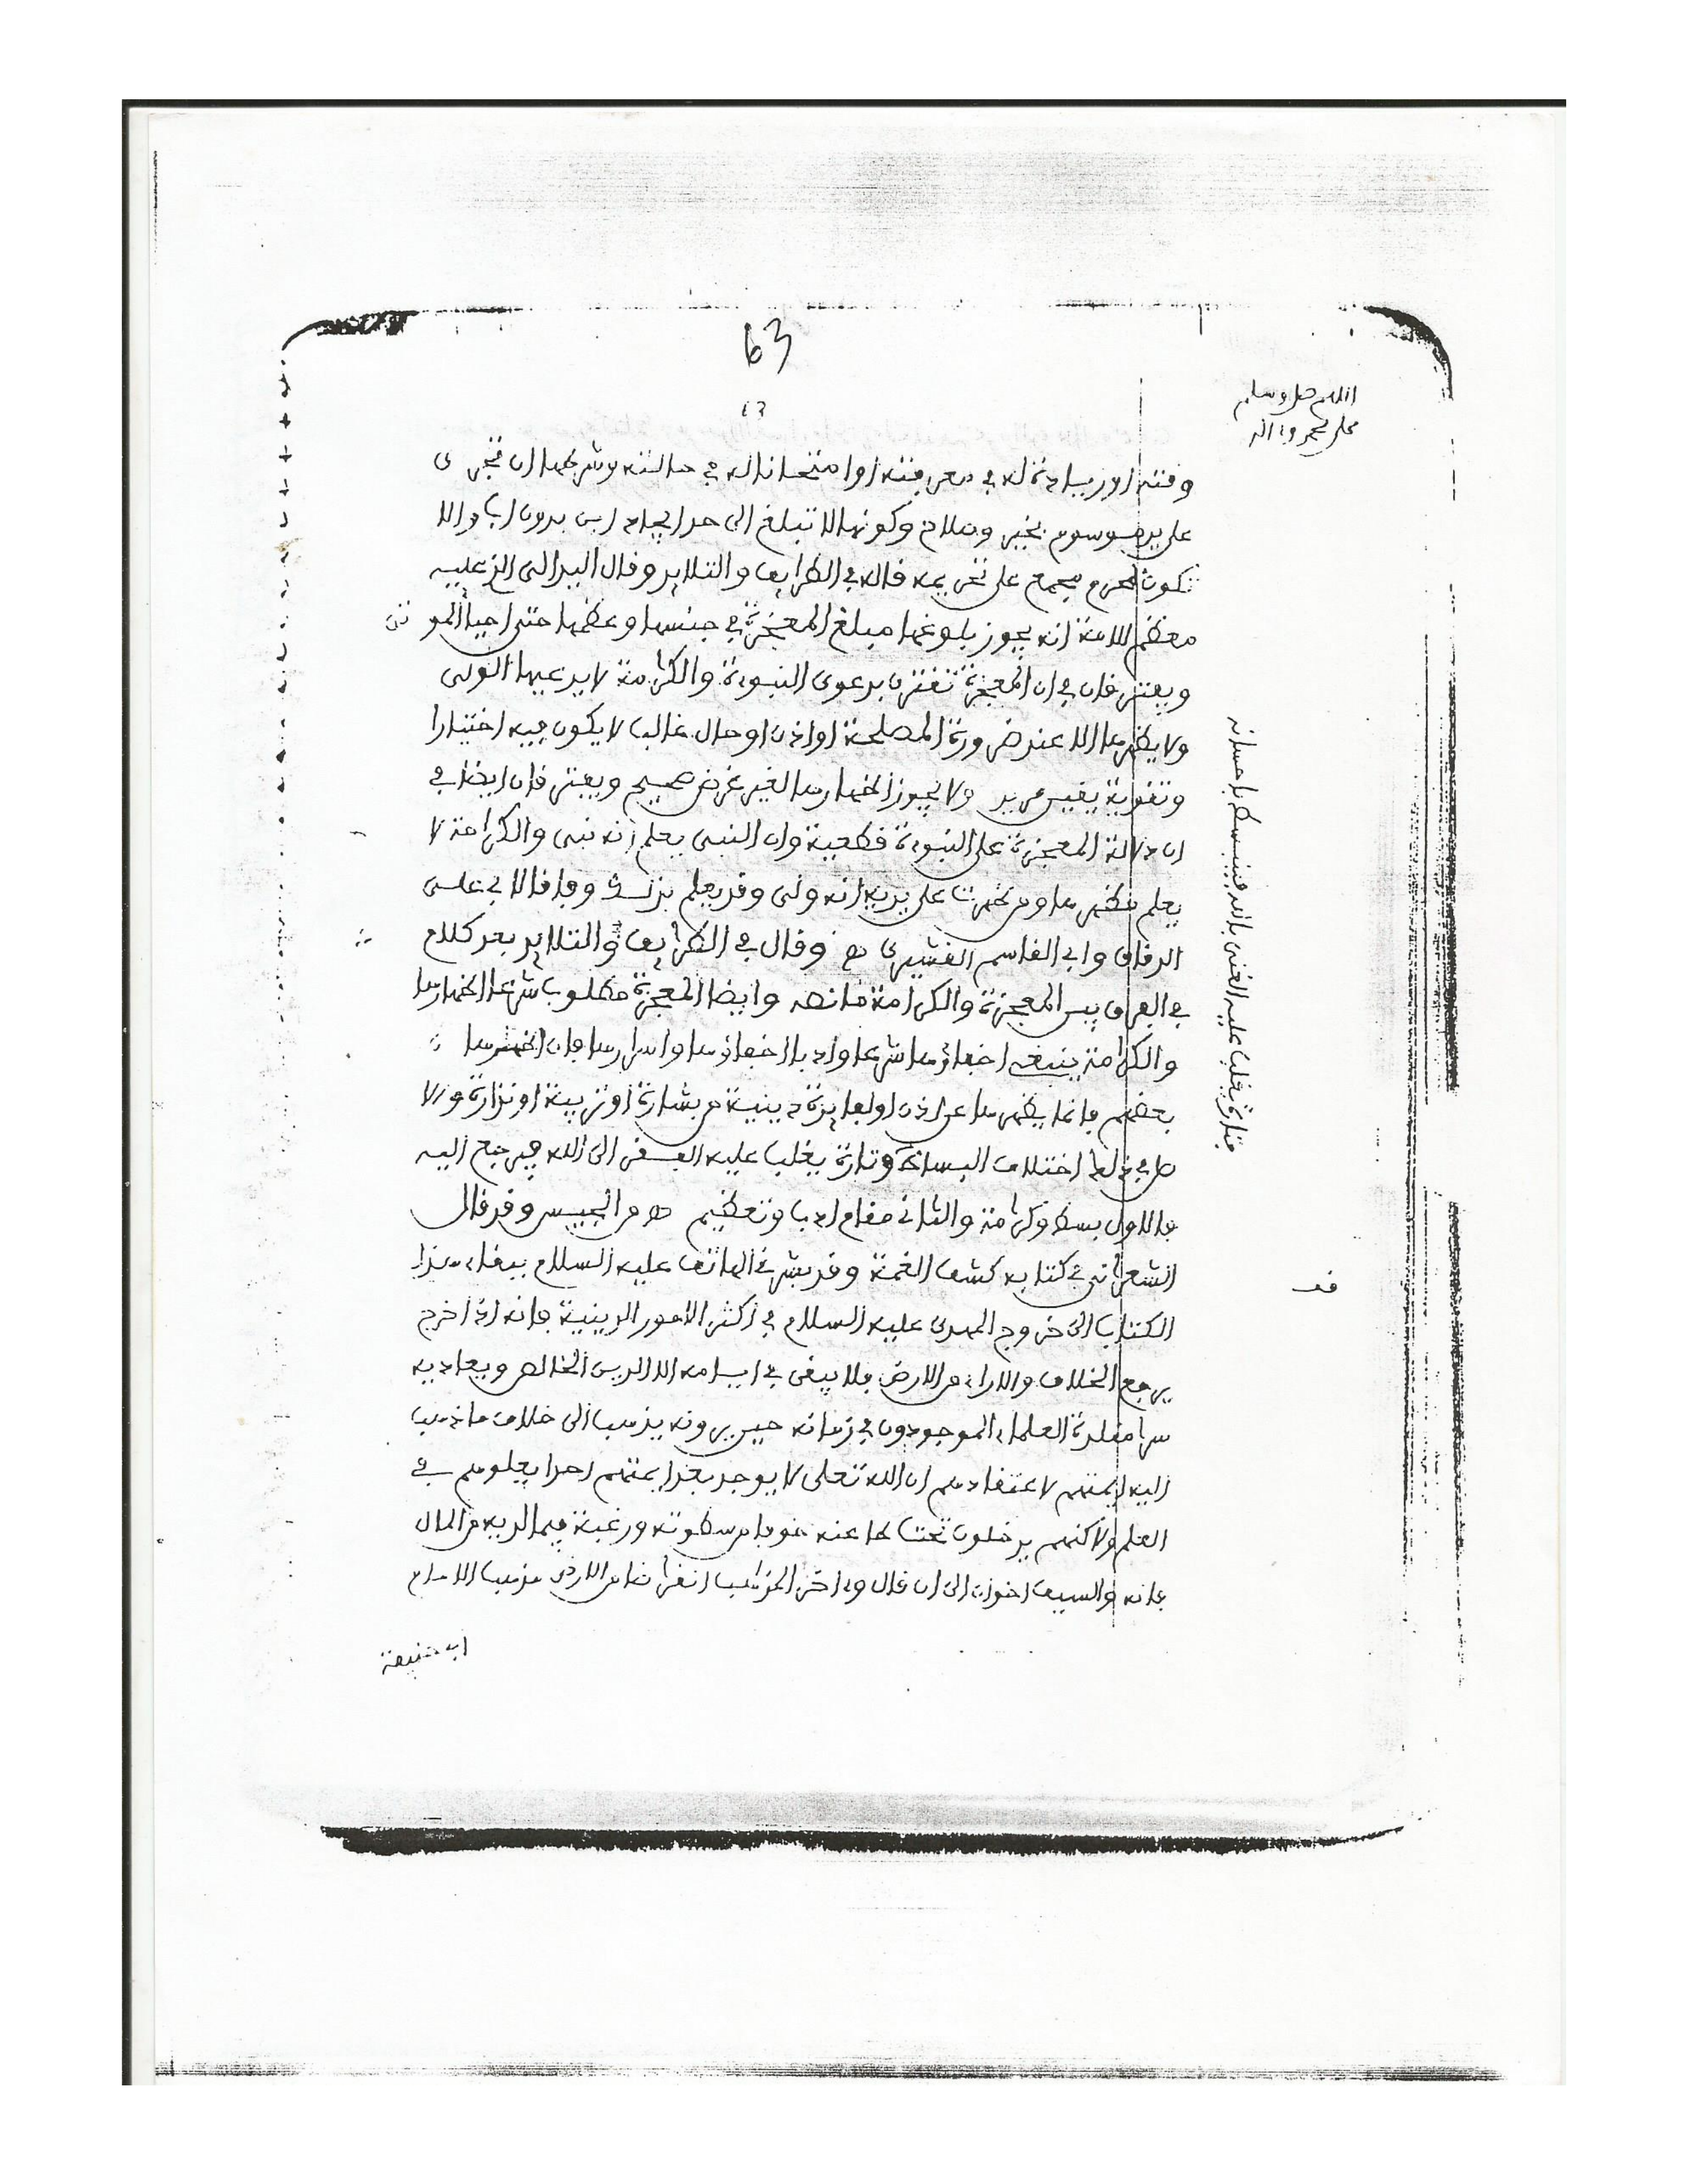 63
63
اللهم صل وسلم
على محمد وءاله
وقته او زيادة له في معرفته او امتحانا له في حالته وشرطها ان تجرى
على يد موسوم بخير وصلاح وكونها لا تبلغ الى حد ايجاد ابن بدون اب والا
تكون محرم مجمع على تحريمه قاله في الطرايف والتلايد وقال البدالى الذي عليه
معظم الامة انه يجوز بلوغها مبلغ المعجزة في جنسها وعظمها حتى احيا الموتى
ويفترقان في ان المعجزة تقترن بدعوى النبوءة والكرامة لا يدعيها الولى
ولا يظهرها الا عند ضرورة المصلحة او اذن او حال غالب لا يكون فيه اختيارا
وتقوية يقين مريد ولا يجوز اظهارها لغير غرض صحيح ويفترقان ايضا في
ان دلالة المعجزة على النبوءة قطعية وان النبى يعلم انه نبى والكرامة لا
يعلم مظهرها ومن ظهرت على يديه انه ولى وقد يعلم بذلك وفاقا لابى على
الدقاق وابى القاسم القشيرى هـ وقال في الطرايف والتلايد بعد كلام
في الفرق بين المعجزة والكرامة ما نصه وايضا المعجزة مطلوب شرعا اظهارها
والكرامة ينبغى اخفاؤها شرعا وادبا اخفاؤها واسرارها فان اظهرها
بعضهم فانما يظهرها عن اذن او لفايدة دينية من بشارة او تربية او نذارة ولا
اختلاف البساط وتارة يغلب عليه الفقر الى الله فيرجع اليه
فالاول بسط وكرامة والثانى مقام ادب وتعظيم هـ من الجيس وقد قال
الشعرانى في كتابه كشف الغمة وقد بشرنى الهاتف عليه السلام ببقاء هذا
الكتاب الى خروج المهدى عليه السلام في اكثر الامور الدينية فانه اذا خرج
يرفع الخلاف والاراء من الارض فلا يبقى في ايامه الا الدين الخالص ويعاديه
سرا مقلدة العلماء الموجودون في زمانه حين يرونه يذهب الى خلاف ما ذهب
اليه ايمتهم لاعتقادهم ان الله تعلى لا يوجد بعد ايمتهم احدا يعلوهم في
العلم ولاكنهم يدخلون تحت طاعته خوفا من سطوته ورغبة فيما لديه من المال
فانه والسيف اخوان الى ان قال وءاخر المذاهب انقراضا من الارض مذهب الامام
ابى حنيفة
فتارة يغلب عليه الغنى بالله فينبسط باحسانه
قف